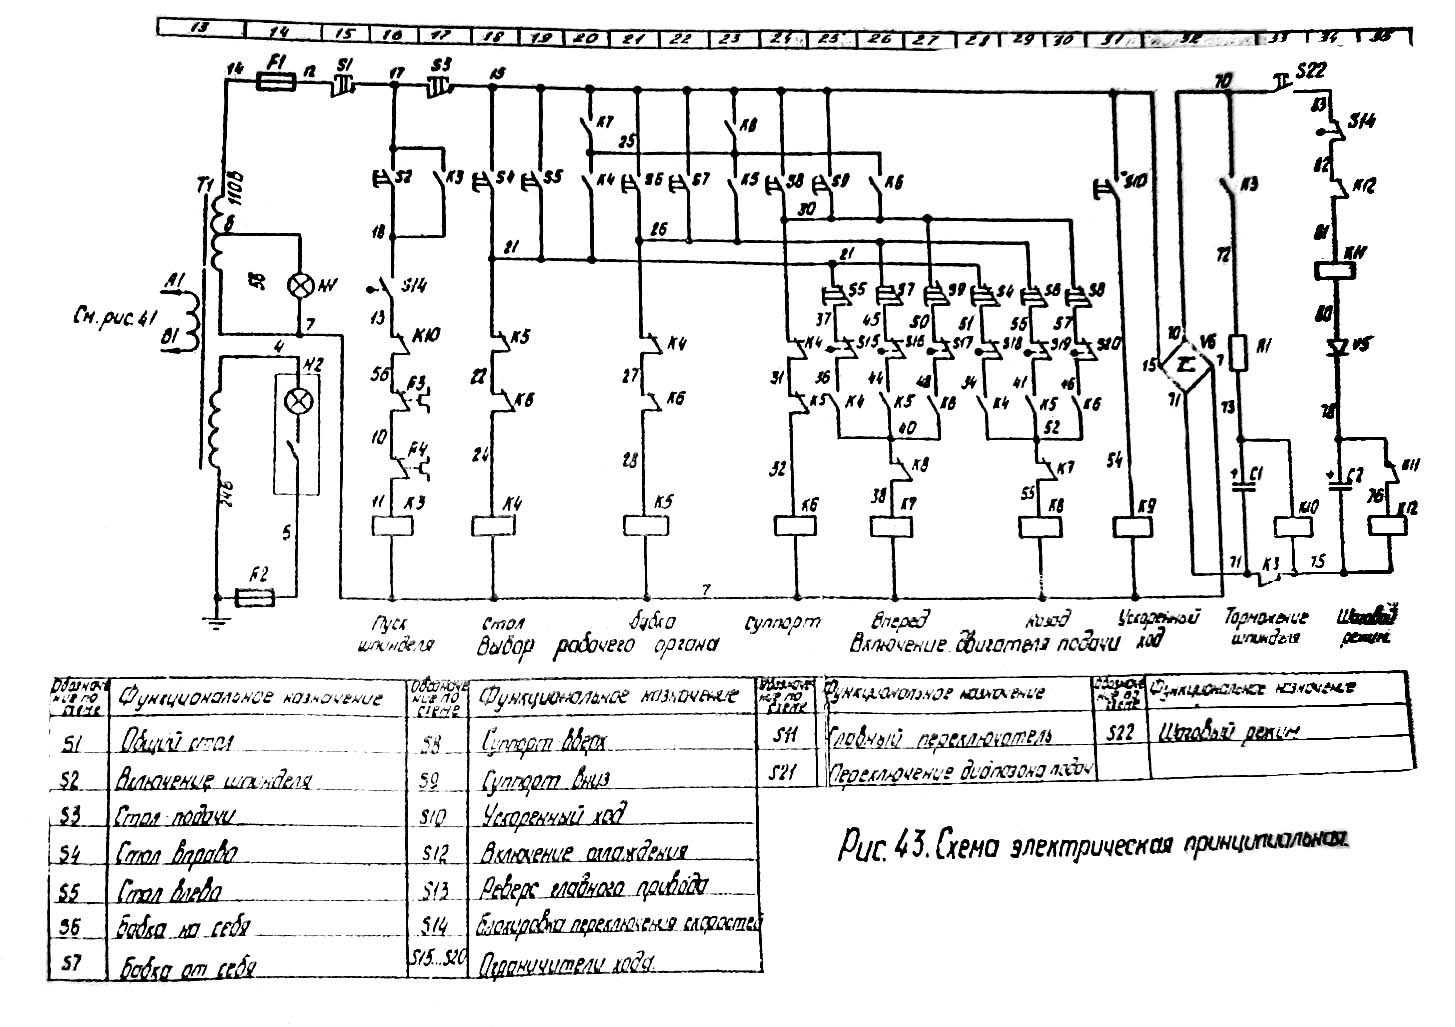 13 14 15 16 17 18 19 20 21 22 23 24 25 26 27 28 29 30 31 32 33 34 35
14 F1 12 S1 17 S3 19 70 S22
83
K7 K8 S14
25
82
110В T1 S2 K3 S4 S5 K4 S6 S7 K5 S8 S9 K6 S10 K3 K12
6 18 30 81
26
5В 21 21 72 K11
A1 H1 S14 S5 S7 S9 S4 S6 S8
См. рис. 41 13 37 45 50 51 55 57 80
B1 7 K10 K5 K4 K4 S15 S16 S17 S18 S19 S20 70 V6 R1 V5
4 15 7
H2 56 F3 22 27 31 36 44 48 34 41 46 71 73 78
K6 K6 K5 K4 K5 K6 K4 K5 K6
10 40 52
F4 24 28 32 K8 K7 54 C1 C2 K11
24В 11 38 53 76
5 K3 K4 K5 K6 K7 K8 K9 K10 K12
F2 71 K3 75
7
Пуск Стол Бабка Суппорт Вперед Назад Ускоренный Торможение Шаговый
шпинделя Выбор рабочего органа Включение двигателя подачи ход шпинделя режим
Обозначение по схеме Функциональное назначение Обозначение по схеме Функциональное назначение Обозначение по схеме Функциональное назначение Обозначение по схеме Функциональное назначение
S1 Общий стоп S8 Суппорт вверх S11 Главный переключатель S22 Шаговый режим
S2 Включение шпинделя S9 Суппорт вниз S21 Переключение диапазона подач
S3 Стоп подачи S10 Ускоренный ход
S4 Стол вправо S12 Включение охлаждения
S5 Стол влево S13 Реверс главного привода
S6 Бабка на себя S14 Блокировка переключения скоростей
S7 Бабка от себя S15...S20 Ограничители хода.
Рис. 43. Схема электрическая принципиальная.